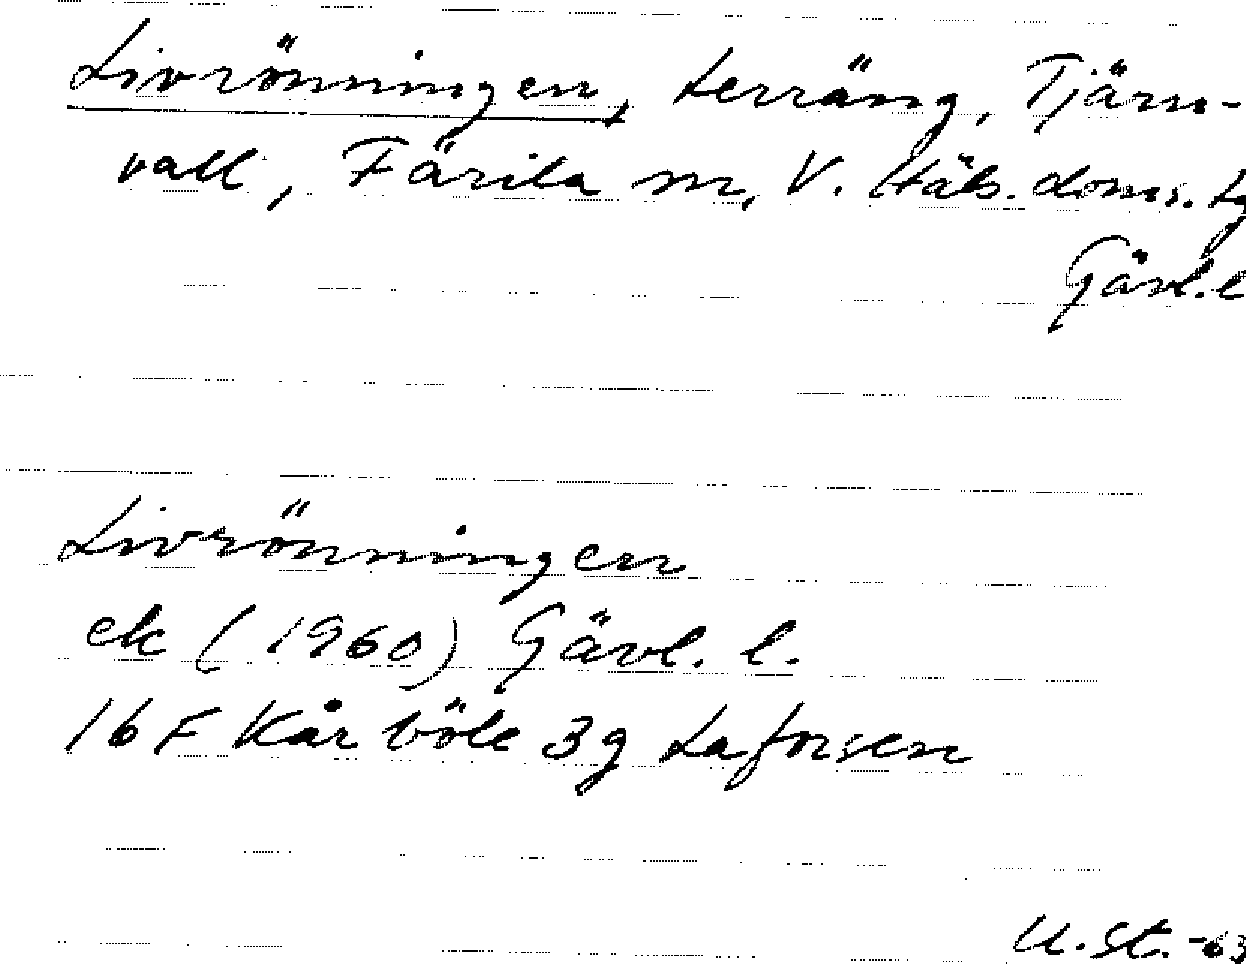 Livrönningen, terräng, Tjärn-
vall, Färila sn, V. Häls. doms. tg
Gävl. l
Livrönningen
ek (1960) Gävl. l.
16 F Kårböle 3g Laforsen
U. St. -63